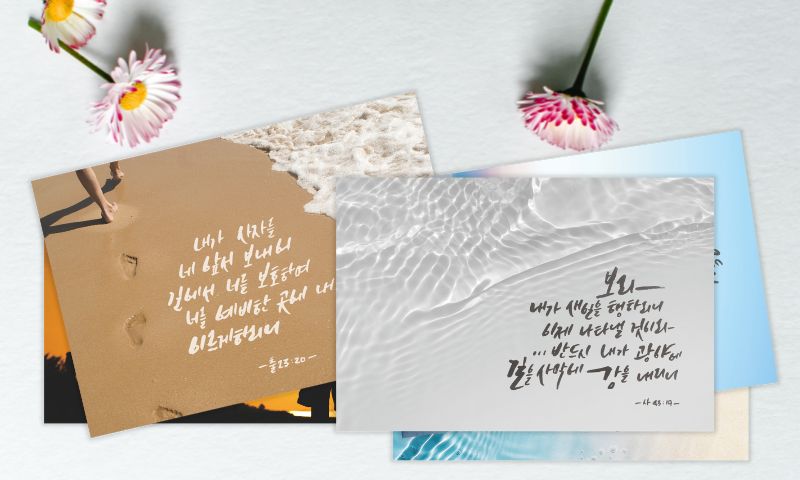 내가 사자를
네 앞서 보내어
길에서 너를 보호하여
너를 예비한 곳에 내
이르게하리니
-출23:20-
보라
내가 새일을 행하리니
이제 나타낼 것이라
... 반드시 내가 광야에
길을 사막에 강을 내리니
-사 43:19-